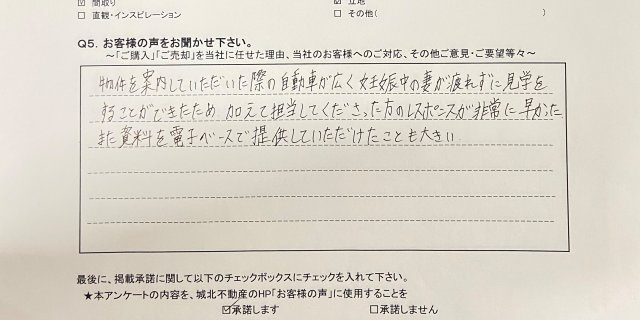 ☑ 間取り ☑ 立地
☐ 直観・インスピレーション ☐ その他( )
Q5. お客様の声をお聞かせ下さい。
～「ご購入」「ご売却」を当社に任せた理由、当社のお客様へのご対応、その他ご意見・ご要望等々～
物件を案内していただいた際の自動車が広く妊娠中の妻が疲れずに見学を
することができたため 加えて担当してくださった方のレスポンスが非常に早かった
また資料を電子ベースで提供していただけたことも大きい
最後に、掲載承諾に関して以下のチェックボックスにチェックを入れて下さい。
★本アンケートの内容を、城北不動産のHP「お客様の声」に使用することを
☑承諾します ☐承諾しません